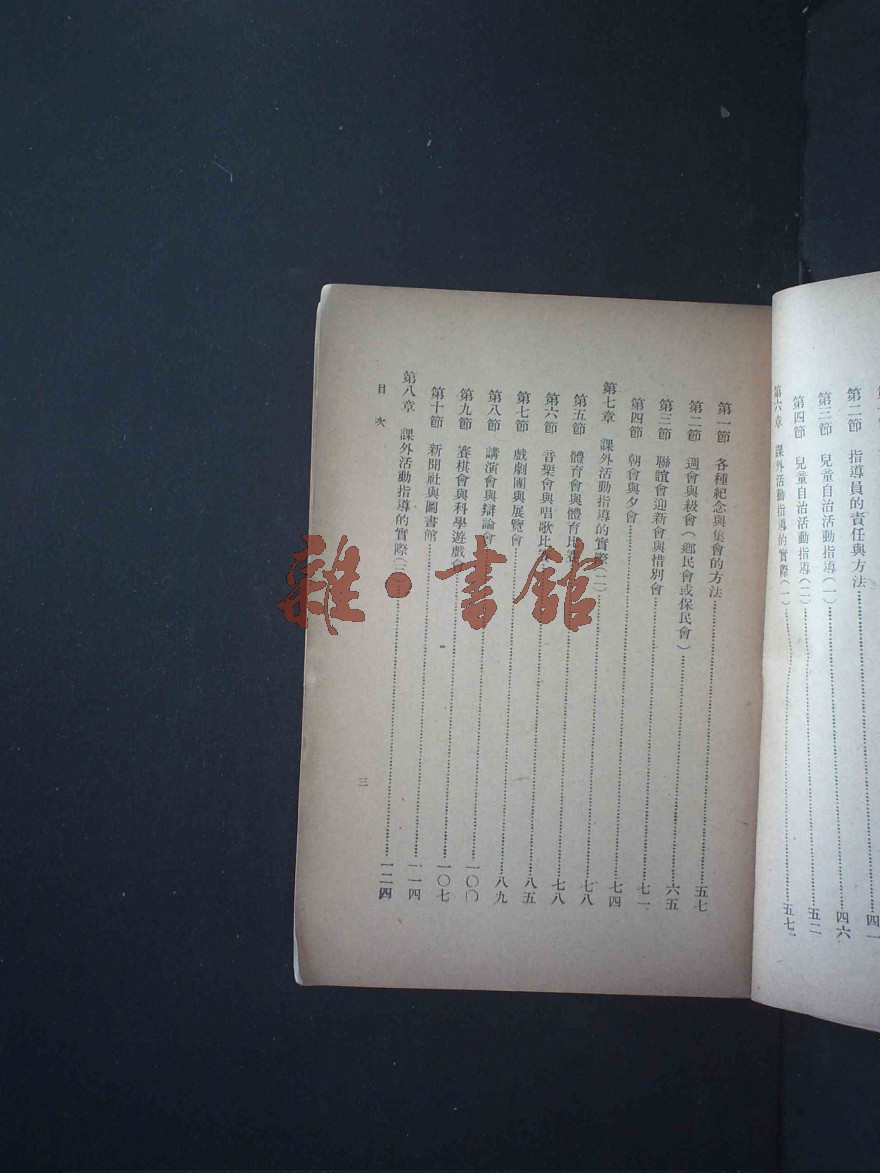 第二節 指導員的責任與方法……四一
第三節 兒童自治活動指導(一)……四六
第四節 兒童自治活動指導(二)……五二
第六章 課外活動指導的實際(一)……五七
第一節 各種紀念與集會的方法……五七
第二節 週會與級會(鄉民會或保民會)……六五
第三節 聯誼會迎新會與惜別會……七一
第四節 朝會與夕會……七四
第七章 課外活動指導的實際(二)……七八
第五節 體育會與體育比賽……七八
第六節 音樂會與唱歌比賽……八五
第七節 戲劇團與展覽會……八九
第八節 講演會與辯論會……一〇〇
第九節 賽棋會與科學遊戲會……一〇七
第十節 新聞社與圖書館……一一四
第八章 課外活動指導的實際(三)……一二四
目次
三
雜·書館